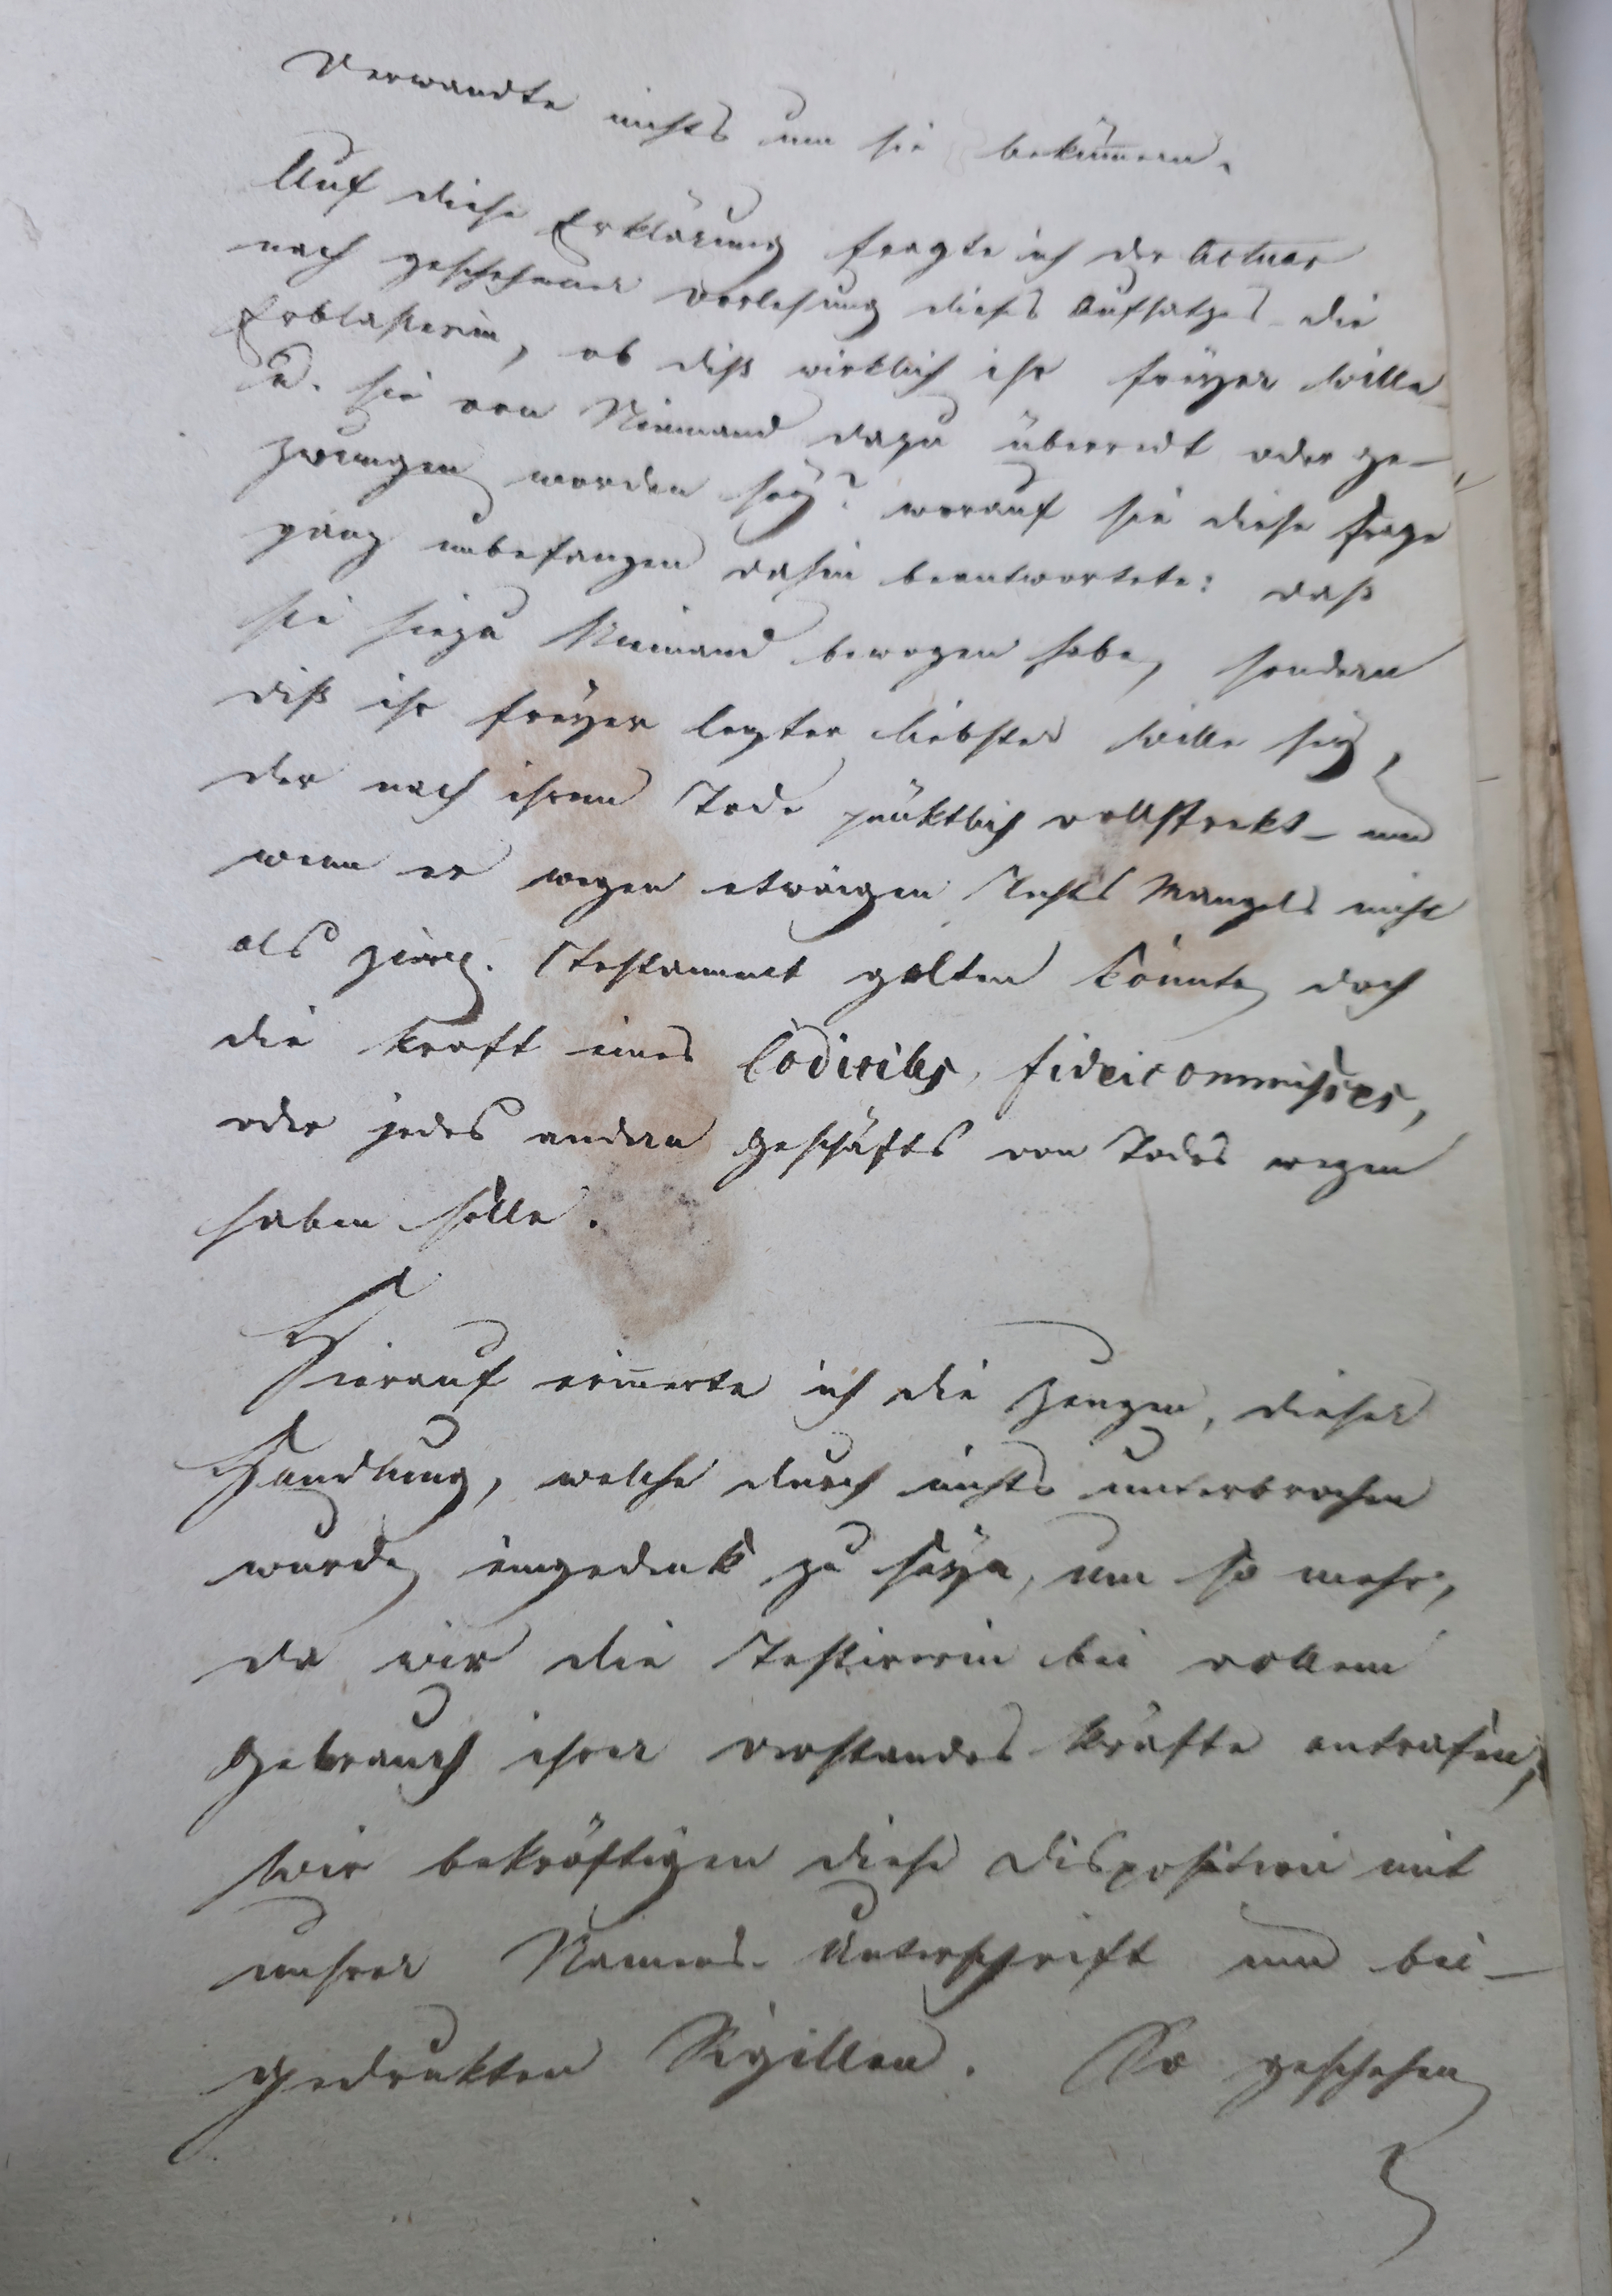 Verwandte nichts um sie bekümern.
Auf diese Erklärung fragte ich der Actuar
nach geschehener Vorlesung dieses Aufsatzes die
Erblasserin, ob diß wirklich ihr freyer Wille
u. sie von Niemand dazu überredt oder ge-
zwungen worden sey? worauf sie diese Frage
ganz unbefangen dahin beantwortete: daß
sie hiezu Niemand bewogen habe, sondern
diß ihr freyer lezter liebster Wille sey,
der nach ihrem Tode pünktlich vollstrekt- und
wenn er wegen etwaigen Rechts Mangels nicht
als Testament gelten könnte, doch
die Kraft eines Codicills, fideicommisses,
oder jedes andern Geschäfts von Todes wegen
haben solle.
Hierauf erinerte ich die Zeugen, dieser
Handlung, welche durch nichts unterbrochen
wurde, eingedenk zu seyn, um so mehr,
da wir die Testirerin bei vollem
Gebrauch ihrer Verstandes Kräfte antrafen,
Wir bekräftigen diese Disposition mit
unsrer Namens- Unterschrift und bei-
gedrukten Sigillen. So geschehen